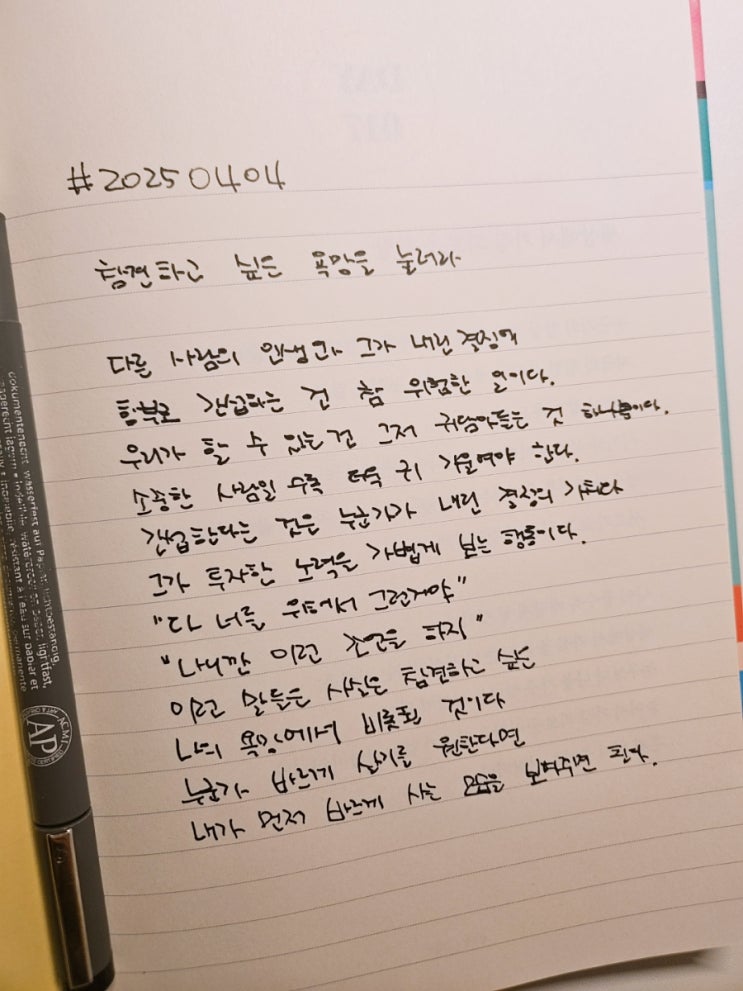 #20250404
참견하고 싶은 욕망을 눌러라
다른 사람의 인생과 그가 내린 결정에
함부로 간섭하는 건 참 위험한 일이다.
우리가 할 수 있는건 그저 귀담아듣는 것 하나뿐이다.
소중한 사람일 수록 더욱 귀 기울여야 한다.
간섭한다는 것은 누군가가 내린 결정의 가치와
그가 투자한 노력을 가볍게 보는 행동이다.
"다 너를 위해서 그런게야"
"나니깐 이런 조언을 하지"
이런 말들은 사실은 참견하고 싶은
나의 욕망에서 비롯된 것이다
누군가 바르게 살기를 원한다면
내가 먼저 바르게 사는 모습을 보여주면 된다.
dokumentenecht, wasserfest auf Papier, lichtbeständig,
AP